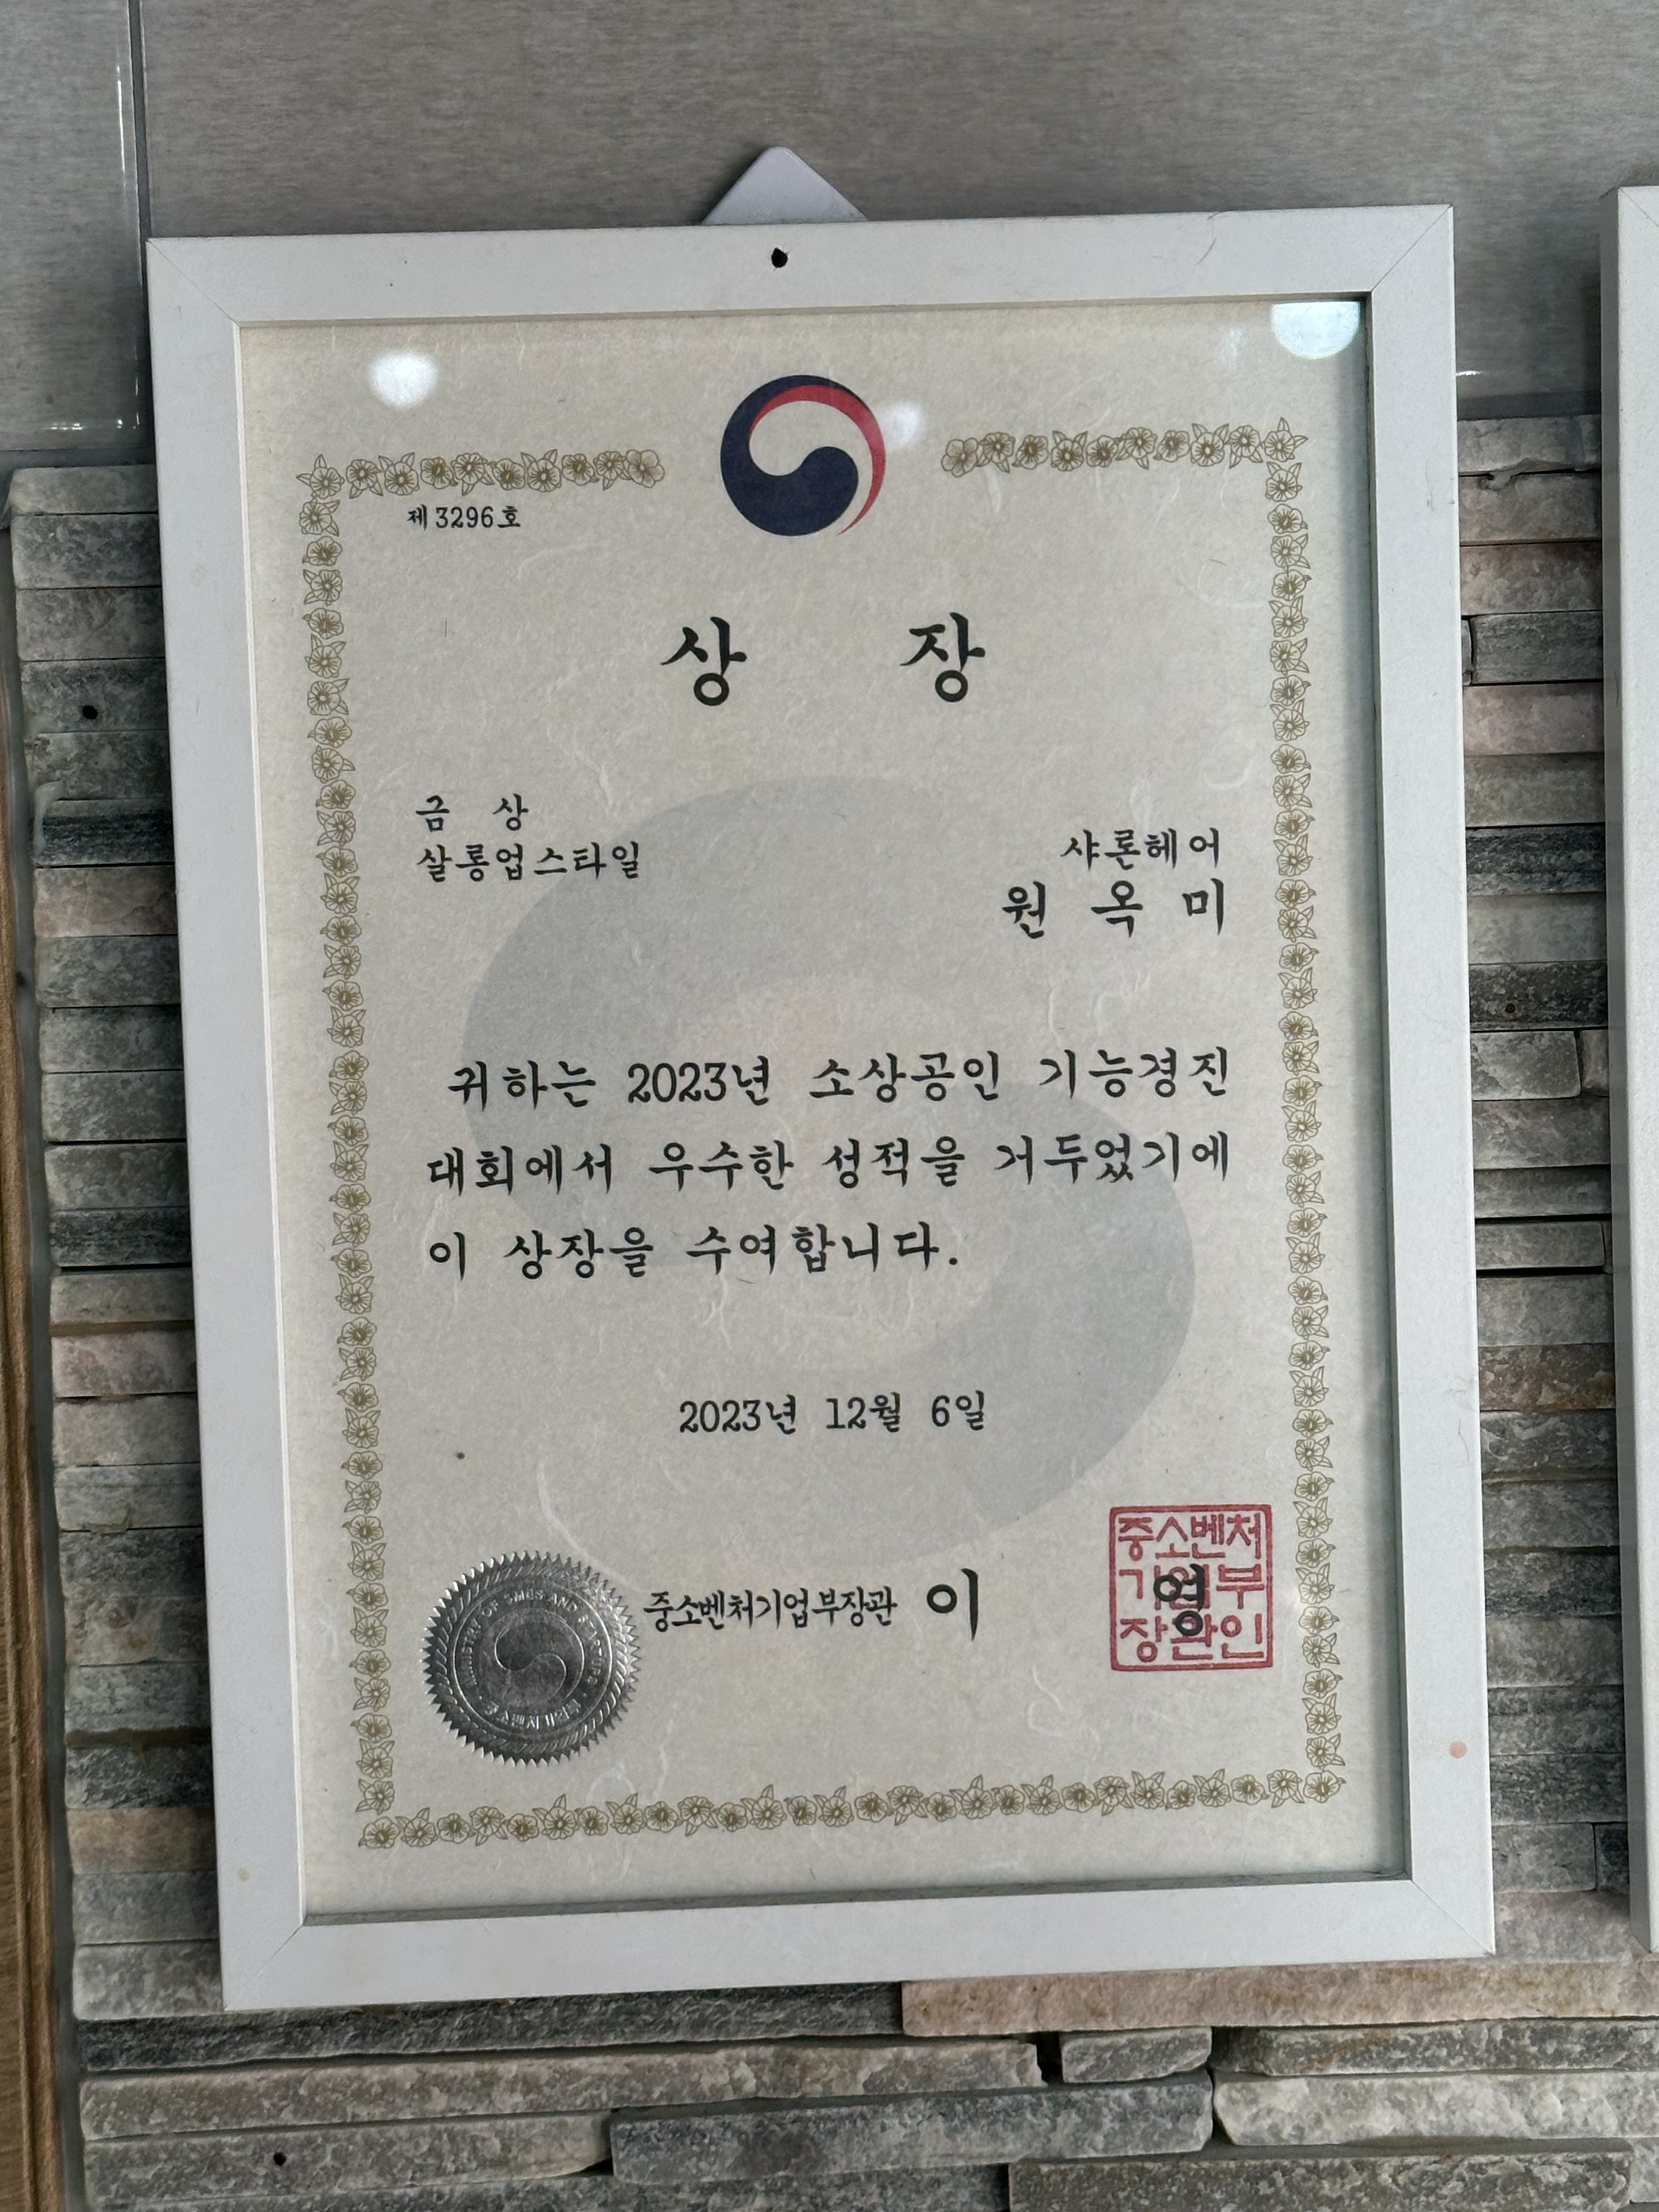 제3296호
상 장
금 상
살롱업스타일
샤론헤어
원 옥 미
귀하는 2023년 소상공인 기능경진
대회에서 우수한 성적을 거두었기에
이 상장을 수여합니다.
2023년 12월 6일
중소벤처기업부장관 이 영
중소벤처
기업부
장관인
MINISTRY OF SMES AND STARTUPS
중소벤처기업부